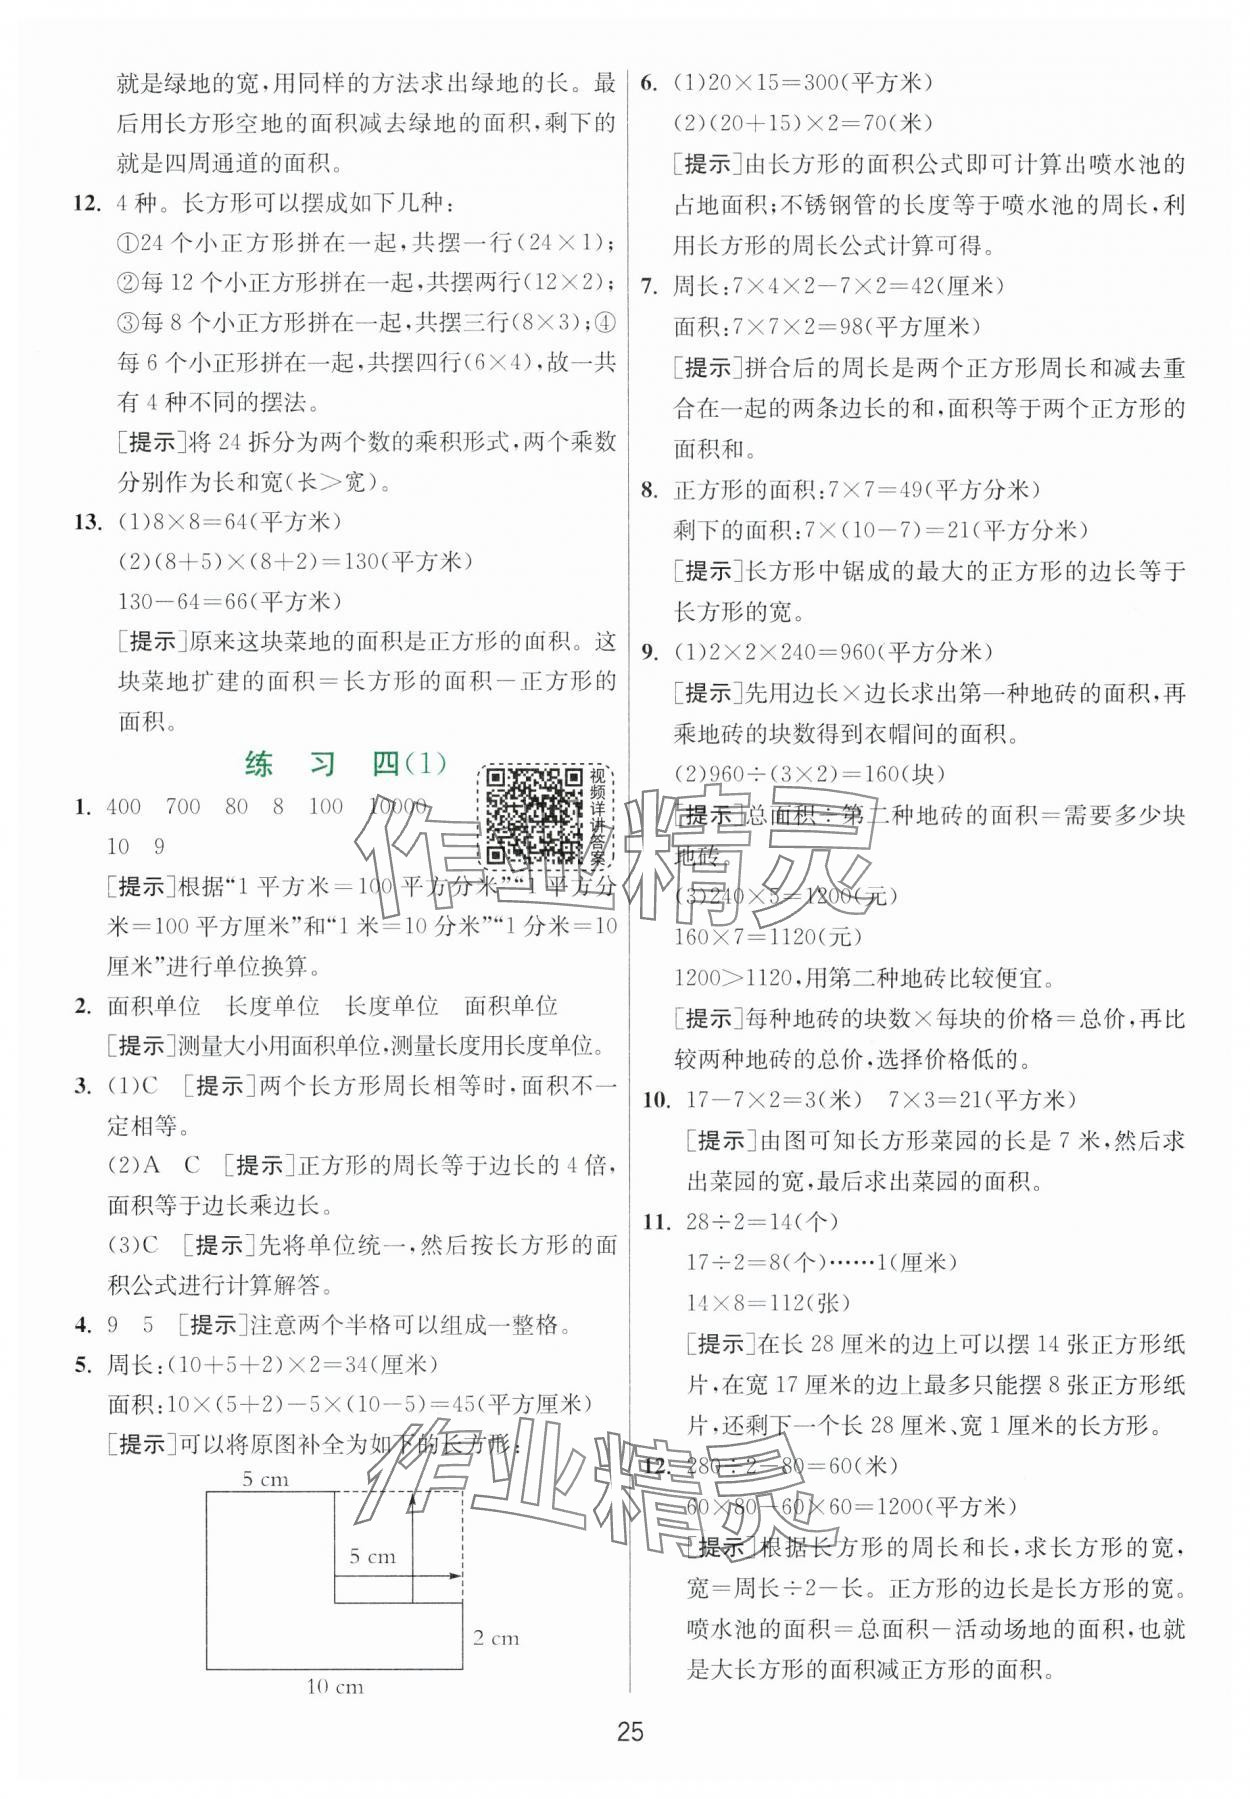 就是绿地的宽,用同样的方法求出绿地的长。最
后用长方形空地的面积减去绿地的面积,剩下的
就是四周通道的面积。
12. 4 种。长方形可以摆成如下几种:
①24 个小正方形拼在一起,共摆一行(24×1);
②每 12 个小正方形拼在一起,共摆两行(12×2);
③每 8 个小正方形拼在一起,共摆三行(8×3);④
每 6 个小正形拼在一起,共摆四行(6×4),故一共
有 4 种不同的摆法。
[提示]将 24 拆分为两个数的乘积形式,两个乘数
分别作为长和宽(长>宽)。
13. (1)8×8=64(平方米)
(2)(8+5)×(8+2)=130(平方米)
130-64=66(平方米)
[提示]原来这块菜地的面积是正方形的面积。这
块菜地扩建的面积=长方形的面积-正方形的
面积。
练 习 四(1)
视频详讲答案
1. 400 700 80 8 100 10000
10 9
[提示]根据“1 平方米=100 平方分米”“1 平方分
米=100 平方厘米”和“1 米=10 分米”“1 分米=10
厘米”进行单位换算。
2. 面积单位 长度单位 长度单位 面积单位
[提示]测量大小用面积单位,测量长度用长度单位。
3. (1)C [提示]两个长方形周长相等时,面积不一
定相等。
(2)A C [提示]正方形的周长等于边长的 4 倍,
面积等于边长乘边长。
(3)C [提示]先将单位统一,然后按长方形的面
积公式进行计算解答。
4. 9 5 [提示]注意两个半格可以组成一整格。
5. 周长:(10+5+2)×2=34(厘米)
面积:10×(5+2)-5×(10-5)=45(平方厘米)
[提示]可以将原图补全为如下的长方形:
5 cm
5 cm
2 cm
10 cm
6. (1)20×15=300(平方米)
(2)(20+15)×2=70(米)
[提示]由长方形的面积公式即可计算出喷水池的
占地面积;不锈钢管的长度等于喷水池的周长,利
用长方形的周长公式计算可得。
7. 周长:7×4×2-7×2=42(厘米)
面积:7×7×2=98(平方厘米)
[提示]拼合后的周长是两个正方形周长和减去重
合在一起的两条边长的和,面积等于两个正方形的
面积和。
8. 正方形的面积:7×7=49(平方分米)
剩下的面积:7×(10-7)=21(平方分米)
[提示]长方形中锯成的最大的正方形的边长等于
长方形的宽。
9. (1)2×2×240=960(平方分米)
[提示]先用边长×边长求出第一种地砖的面积,再
乘地砖的块数得到衣帽间的面积。
(2)960÷(3×2)=160(块)
[提示]总面积÷第二种地砖的面积=需要多少块
地砖。
(3)240×5=1200(元)
160×7=1120(元)
1200>1120,用第二种地砖比较便宜。
[提示]每种地砖的块数×每块的价格=总价,再比
较两种地砖的总价,选择价格低的。
10. 17-7×2=3(米) 7×3=21(平方米)
[提示]由图可知长方形菜园的长是 7 米,然后求
出菜园的宽,最后求出菜园的面积。
11. 28÷2=14(个)
17÷2=8(个)……1(厘米)
14×8=112(张)
[提示]在长 28 厘米的边上可以摆 14 张正方形纸
片,在宽 17 厘米的边上最多只能摆 8 张正方形纸
片,还剩下一个长 28 厘米、宽 1 厘米的长方形。
12. 280÷2-80=60(米)
60×80-60×60=1200(平方米)
[提示]根据长方形的周长和长,求长方形的宽,
宽=周长÷2-长。正方形的边长是长方形的宽。
喷水池的面积=总面积-活动场地的面积,也就
是大长方形的面积减正方形的面积。
作业精灵
作业精灵
25